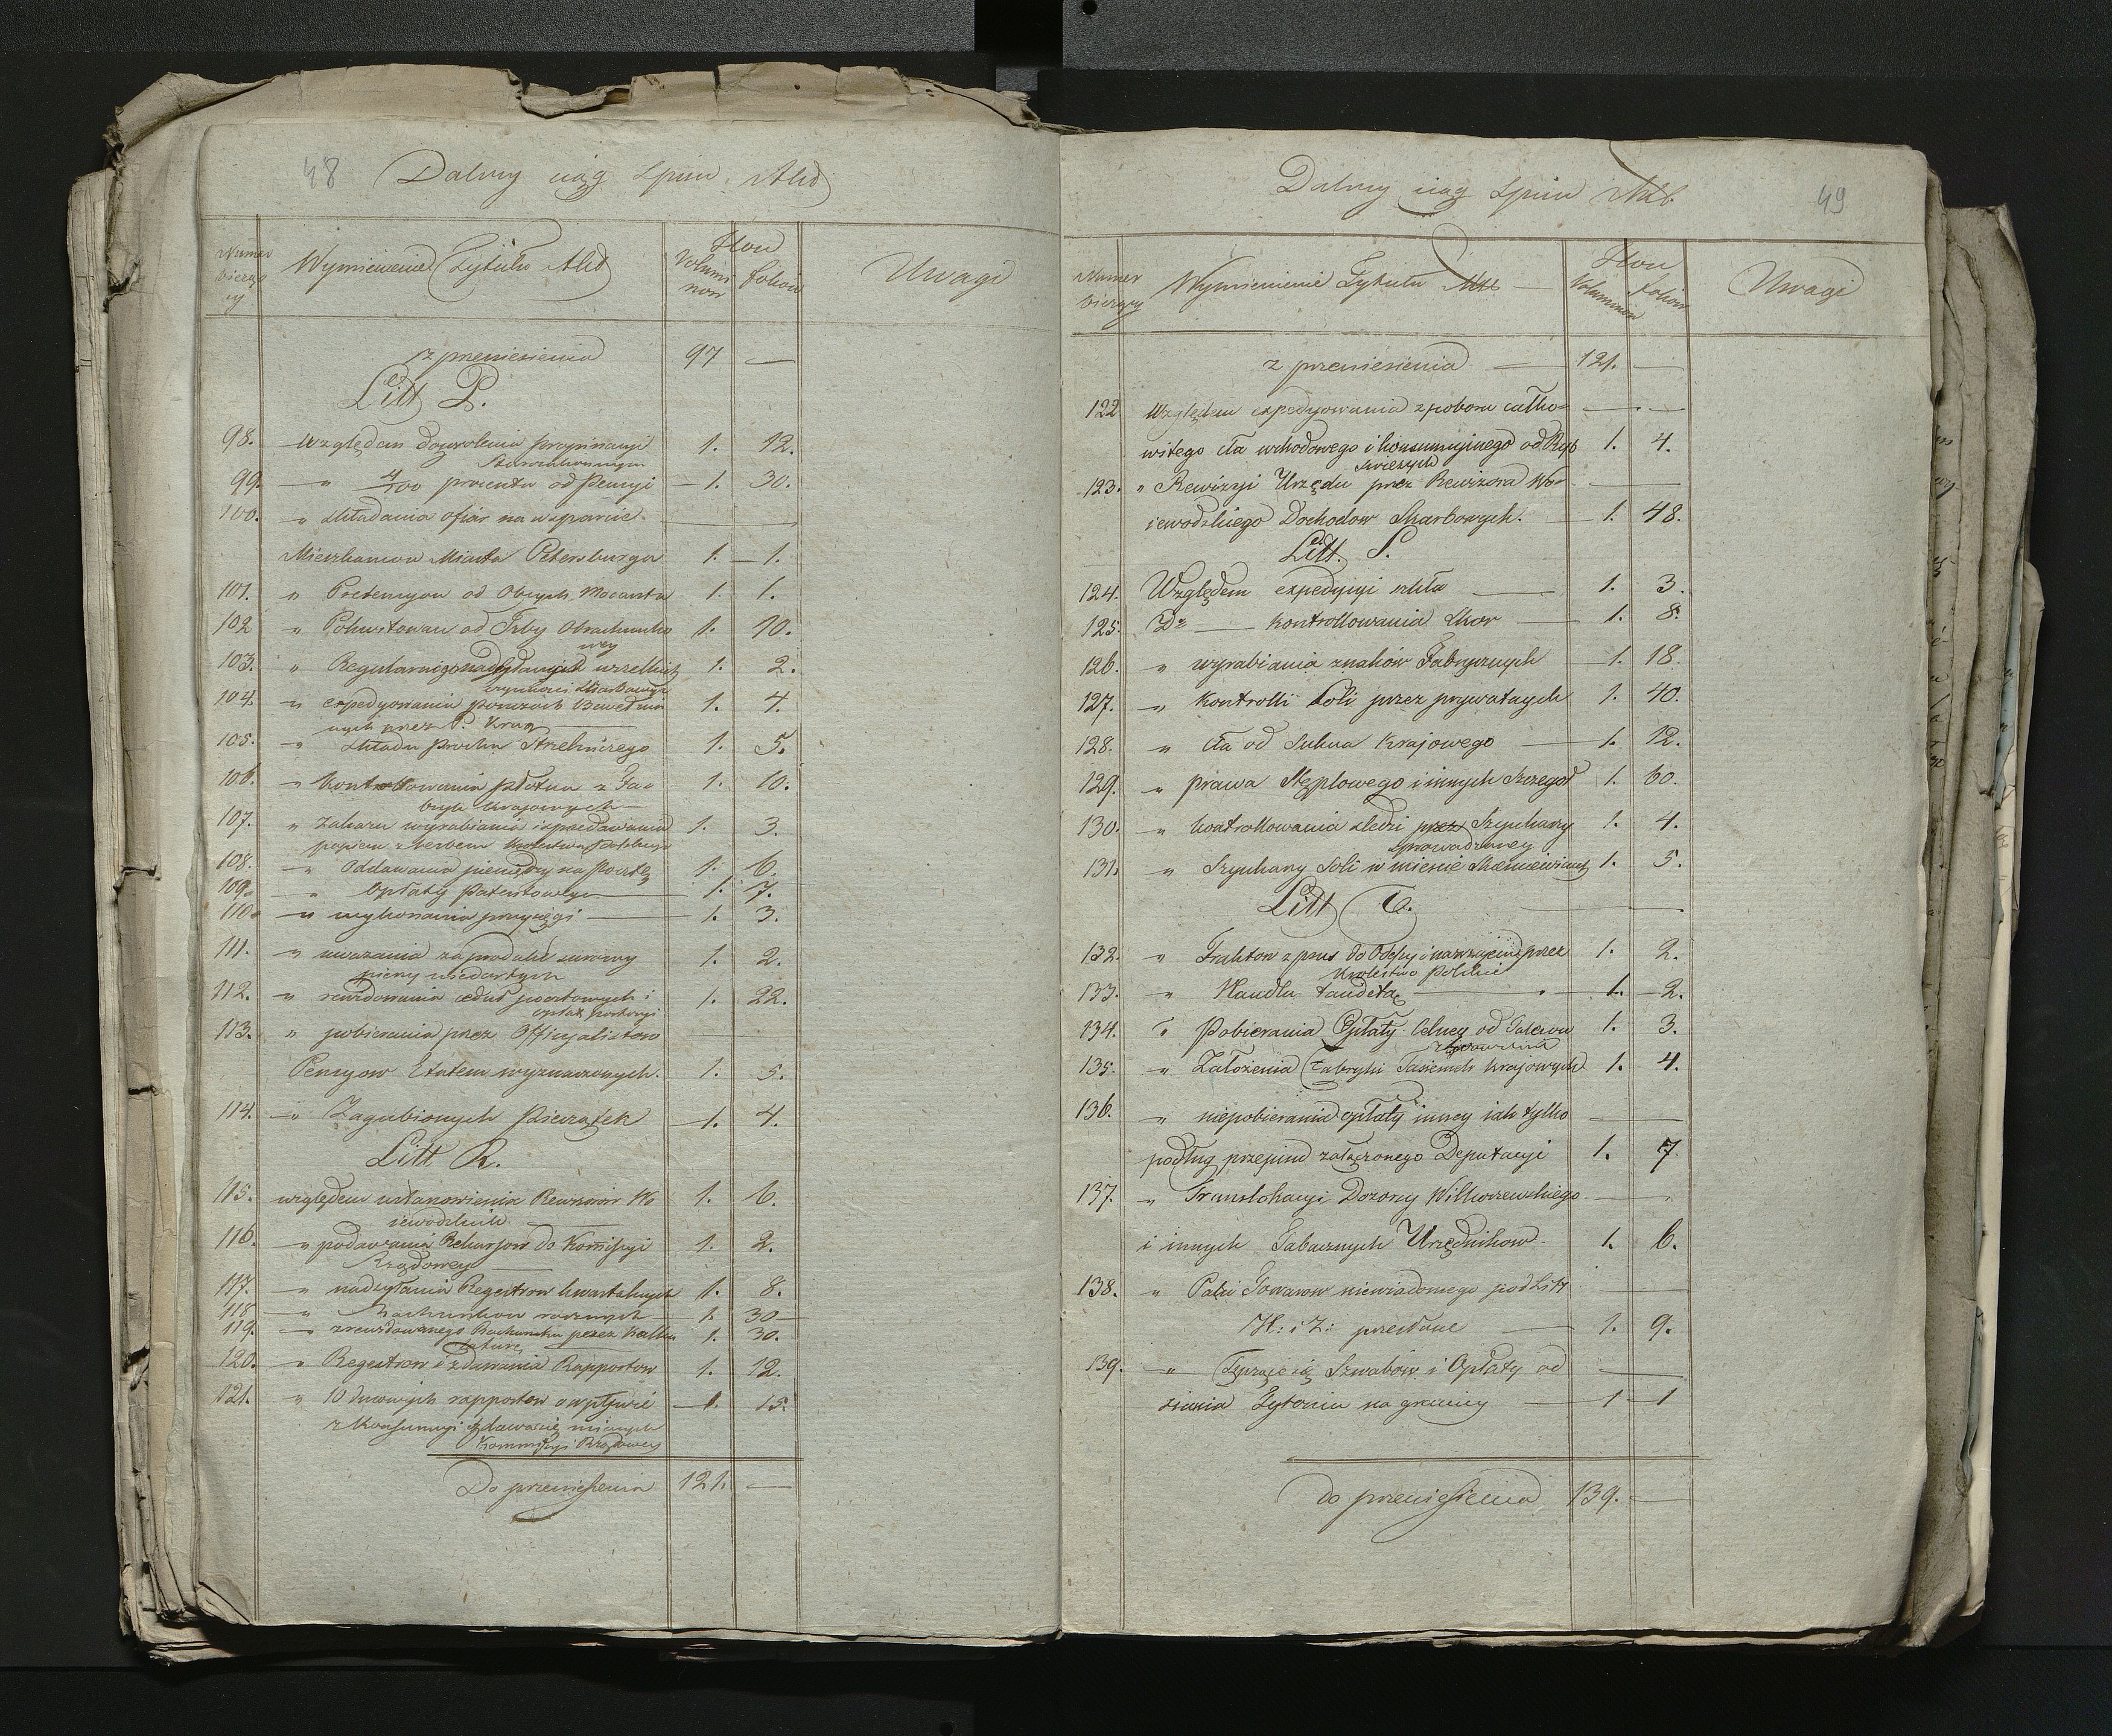 48 Dalszy ciąg Spisu Akt
Numer bieżący Wymienienie Tytułu Akt Ilość Voluminow foliow Uwagi
z przeniesienia 97 —
Litt P.
98. Względem dozwolenia propinacyi 1. 12.
Starozakonnym
99. — " 4/100 procentu od Pensyi — 1. 30.
100. " składania ofiar na wsparcie
Mieszkancow Miasta Petersburga 1. — 1.
101. " Pretensyow od Obcych Mocarstw 1. 1.
102 " Pokwitowan od Izby Obrachunko 1. 10.
wey
103. " Regularnego nadsyłanych wszelkich 1. 2.
104. " expedyowania ponczoch Bawełnia 1. 4.
nych przez P. Kraz
105. " składu Prochu Strzelniczego 1. 5.
106. " Kontrollowania płotna z Fa- 1. 10.
bryk Krajowych —
107. " Zakazu wyrabiania i sprzedawania 1. 3.
papieru z herbem Krolestwa Polskiego
108. — " Oddawania pieniędzy na Pocztę 1. 6.
109. " Opłaty Patentowey 1. 7.
110. — " wykonania przysięgi — 1. 3.
111. — " uwazania za produkt surowy 1. 2.
pierzy niedartych
112. — " rewidowania cedul pocztowych i 1. 22.
opłat portoryi
113. " pobierania przez Officyalistow
Pensyow Etatem wyznaczonych. 1. 5.
114. — " Zagubionych Pieczątek — 1. 4.
Litt R.
115. względem ustanowienia Rewizorow Wo 1. 6.
iewodzkich
116. — " podawania Rekursow do Komissyi 1. 2.
Rządowey —
117. — " nadsyłania Regestrow kwartalnych 1. 8.
118 — " Rachunkow rocznych — 1. 30 —
119. — " zrewidowanego Rachunku przez Kalku 1. 30.
laturę
120. — " Regestrow i zdawania Rapportow 1. 12.
121. " 10 dniowych rapportow o wpływie — 1. 15.
z Konsumcyi zdawać się maiących
Kommissyi Rządowey
Do przeniesienia 121. —
Dalszy ciąg Spisu Akt. 49
Numer bieżący Wymienienie Tytułu Akt — Ilość Voluminow foliow Uwagi
z przeniesienia — 121. —
122 Względem expedyowania z poboru całko- — —
witego cła wchodowego i konsumcyinego od Ryb 1. 4.
swiezych
123. " Rewizyi Urzędu przez Rewizora Wo- —
iewodzkiego Dochodow Skarbowych. — 1. 48.
Litt. S.
124. Względem expedycyi szkła — 1. 3.
125. Do — kontrollowania Skor — 1. 8.
126. " wyrabiania znaków Fabrycznych — 1. 18.
127. " Kontrolli Soli przez prywatnych 1. 40.
128. " cła od Sukna Krajowego — 1. 12.
129. " prawa Stęplowego i innych Szczegoł 1. 60.
130. " kontrollowania śledzi przez Szyuhany 1. 4.
sprowadzoney
131. " Szyuhany Soli w miescie Skierniewicach 1. 5.
Litt T. —
132. " Traktow z prus do Odessy i nawzajem przez 1. 2.
Krolestwo Polskie
133. " Handlu tandetą — 1. — 2.
134. " Pobierania Opłaty Celney od Towarow 1. 3.
135. " Załozenia Fabryki Tasiemek krajowych 1. 4.
136. " niepobierania opłaty inney iak tylko —
podług przepisu załączonego Deputacyi 1. 7
137. " Translokacyi Dozorcy Wilkoszewskiego —
i innych Tabacznych Urzędnikow — 1. 6.
138. " Paki Towarow niewiadomego pod Litt —
H: i Z: przesłane — 1. 9.
139. — " Szwabów i Opłaty od —
siania Tytoniu na granicy — 1 — 1
do przeniesienia 139. —